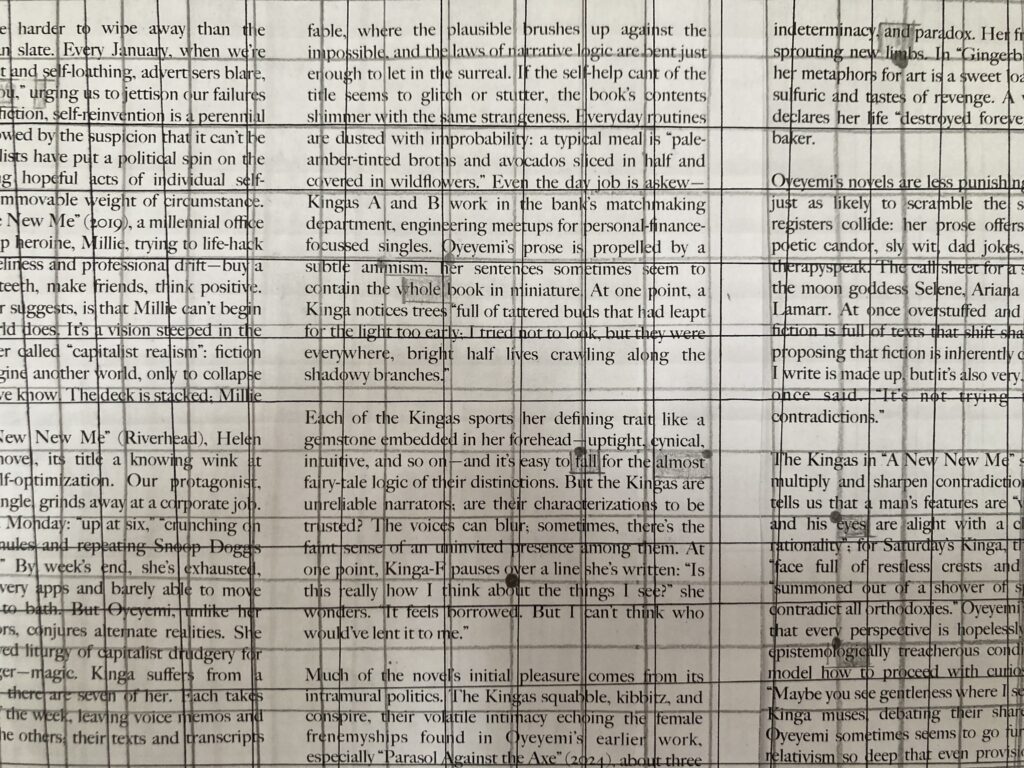 e harder to wipe away than the
n slate. Every January, when we're
t and self-loathing, advertisers blare,
ou," urging us to jettison our failures
fiction, self-reinvention is a perennial
owed by the suspicion that it can't be
lists have put a political spin on the
g hopeful acts of individual self-
mmovable weight of circumstance.
New Me" (2019), a millennial office
p heroine, Millie, trying to life-hack
eliness and professional drift—buy a
teeth, make friends, think positive.
r suggests, is that Millie can't begin
rld does. It's a vision steeped in the
er called "capitalist realism": fiction
gine another world, only to collapse
ve know. The deck is stacked; Millie
New New Me" (Riverhead), Helen
novel, its title a knowing wink at
lf-optimization. Our protagonist,
ngle, grinds away at a corporate job.
Monday: "up at six," "crunching on
nules and repeating Snoop Dogg's
" By week's end, she's exhausted,
very apps and barely able to move
to bath. But Oyeyemi, unlike her
ors, conjures alternate realities. She
ed liturgy of capitalist drudgery for
ger—magic. Kinga suffers from a
there are seven of her. Each takes
the week, leaving voice memos and
he others; their texts and transcripts
fable, where the plausible brushes up against the
impossible, and the laws of narrative logic are bent just
enough to let in the surreal. If the self-help cant of the
title seems to glitch or stutter, the book's contents
shimmer with the same strangeness. Everyday routines
are dusted with improbability: a typical meal is "pale-
amber-tinted broths and avocados sliced in half and
covered in wildflowers." Even the day job is askew—
Kingas A and B work in the bank's matchmaking
department, engineering meetups for personal-finance-
focussed singles. Oyeyemi's prose is propelled by a
subtle animism; her sentences sometimes seem to
contain the whole book in miniature. At one point, a
Kinga notices trees "full of tattered buds that had leapt
for the light too early; I tried not to look, but they were
everywhere, bright half lives crawling along the
shadowy branches."
Each of the Kingas sports her defining trait like a
gemstone embedded in her forehead—uptight, cynical,
intuitive, and so on—and it's easy to fall for the almost
fairy-tale logic of their distinctions. But the Kingas are
unreliable narrators; are their characterizations to be
trusted? The voices can blur; sometimes, there's the
faint sense of an uninvited presence among them. At
one point, Kinga-F pauses over a line she's written: "Is
this really how I think about the things I see?" she
wonders. "It feels borrowed. But I can't think who
would've lent it to me."
Much of the novel's initial pleasure comes from its
intramural politics. The Kingas squabble, kibbitz, and
conspire, their volatile intimacy echoing the female
frenemyships found in Oyeyemi's earlier work,
especially "Parasol Against the Axe" (2024), about three
indeterminacy, and paradox. Her fi
sprouting new limbs. In "Gingerb
her metaphors for art is a sweet loa
sulfuric and tastes of revenge. A
declares her life "destroyed foreve
baker.
Oyeyemi's novels are less punishing
just as likely to scramble the s
registers collide: her prose offers
poetic candor, sly wit, dad jokes,
therapyspeak. The call sheet for a
the moon goddess Selene, Ariana
Lamarr. At once overstuffed and
fiction is full of texts that shift sha
proposing that fiction is inherently
I write is made up, but it's also very
once said. "It's not trying
contradictions."
The Kingas in "A New New Me"
multiply and sharpen contradiction
tells us that a man's features are "
and his eyes are alight with a c
rationality"; for Saturday's Kinga, t
"face full of restless crests and
"summoned out of a shower of s
contradict all orthodoxies." Oyeyemi
that every perspective is hopelessly
epistemologically treacherous condi
model how to proceed with curio
"Maybe you see gentleness where I se
Kinga muses, debating their share
Oyeyemi sometimes seems to go fur
relativism so deep that even provisi